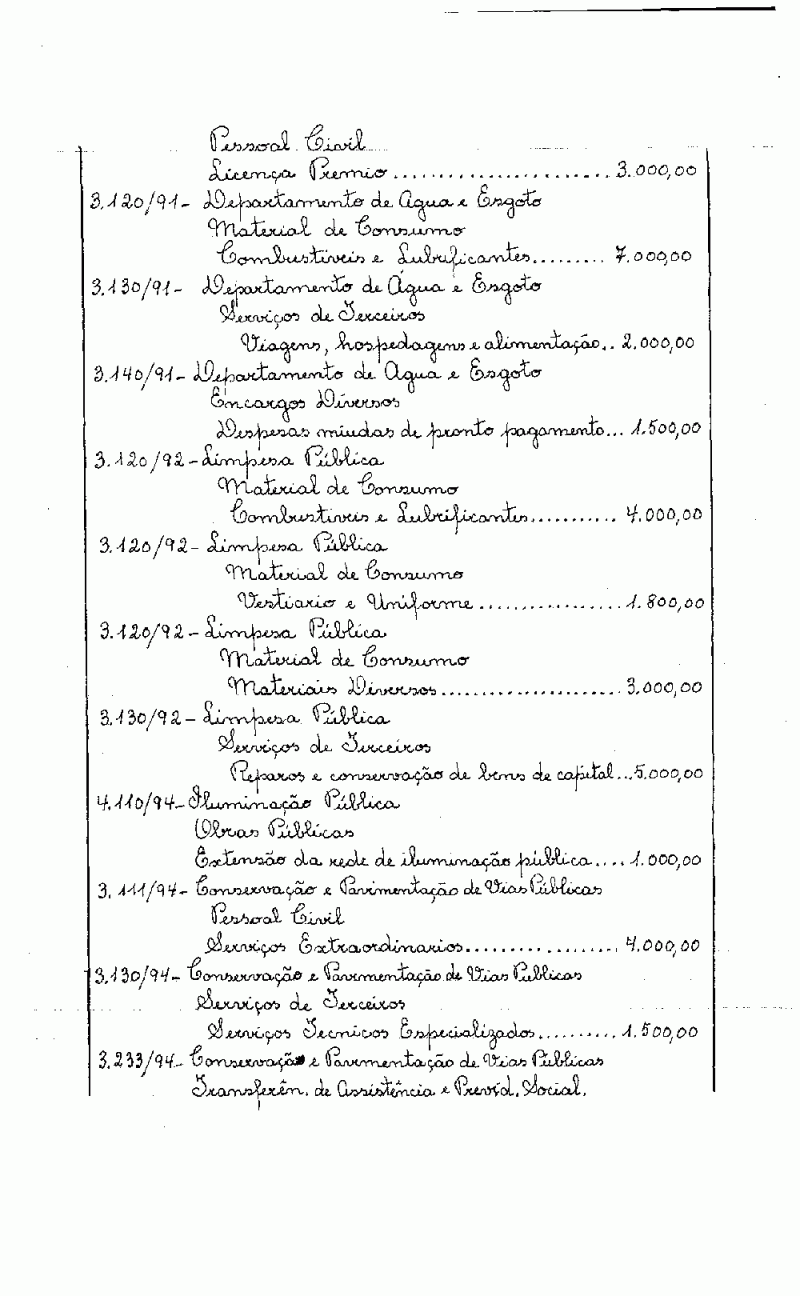 Pessoal Civil
Licença Premio....................... 3.000,00
3.120/91- Departamento de Água e Esgoto
Material de Consumo
Combustiveis e Lubrificantes......... 7.000,00
3.130/91- Departamento de Água e Esgoto
Serviços de Terceiros
Viagens, hospedagens e alimentação.. 2.000,00
3.140/91- Departamento de Agua e Esgoto
Encargos Diversos
Despesas miudas de pronto pagamento... 1.500,00
3.120/92-Limpesa Pública
Material de Consumo
Combustiveis e Lubrificantes........... 4.000,00
3.120/92-Limpesa Pública
Material de Consumo
Vestiario e Uniforme .................. 1.800,00
3.120/92-Limpesa Pública
Material de Consumo
Materiais Diversos....................... 3.000,00
3.130/92-Limpesa Pública
Serviços de Terceiros
Reparos e conservação de bens de capital...5.000,00
4.110/94-Iluminação Pública
Obras Públicas
Extensão da rede de iluminação pública.... 1.000,00
3.111/94- Conservação e Pavimentação de Vias Públicas
Pessoal Civil
Serviços Extraordinarios.................... 4.000,00
3.130/94- Conservação e Pavimentação de Vias Publicas
Serviços de Terceiros
Serviços Tecnicos Especializados.......... 1.500,00
3.233/94- Conservação e Pavimentação de Vias Públicas
Transferên. de Assistência e Previd. Social.